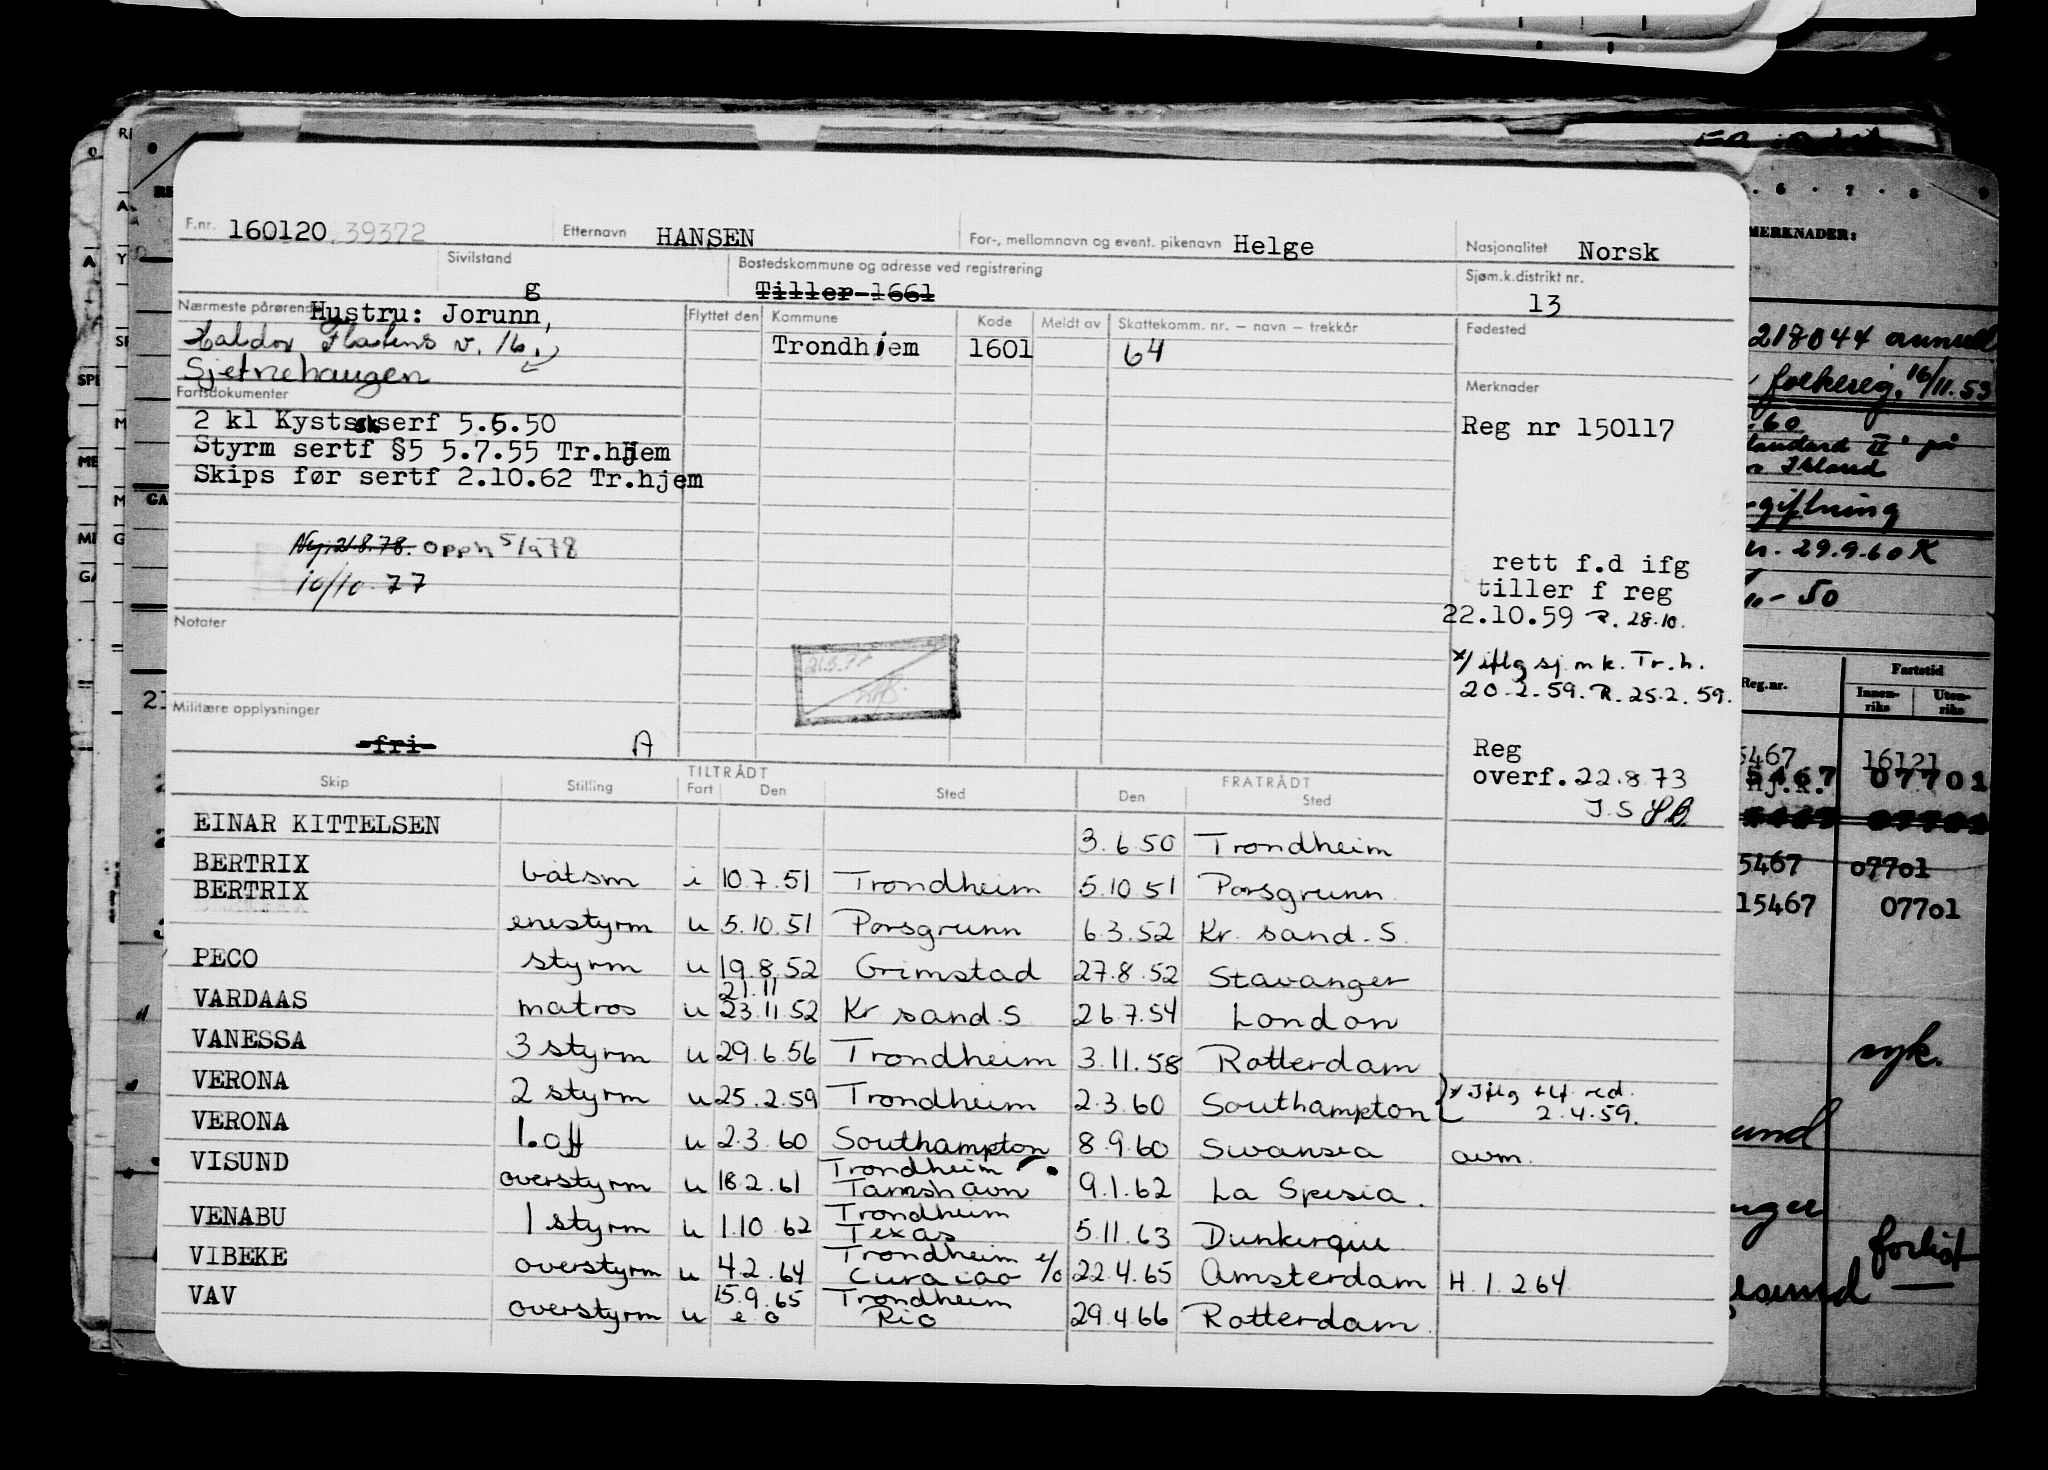 F.nr. 160120 39372 Etternavn HANSEN For-, mellomnavn og event. pikenavn Helge Nasjonalitet Norsk
Sivilstand g Bostedskommune og adresse ved registrering Tiller-1661 Sjøm.k.distrikt nr. 13
Nærmeste pårørende Hustru: Jorunn, Flyttet den Kommune Kode Meldt av Skattekomm. nr. – navn – trekkår Fødested
v. 16. Trondhiem 1601 64
Sjetnehaugen
Fartsdokumenter Merknader
2 kl Kystsskserf 5.5.50 Reg nr 150117
Styrm sertf §5 5.7.55 Tr.hjem
Skips før sertf 2.10.62 Tr.hjem
Ny. 21.8.78. opph 5/9 78
10/10. 77
rett f.d ifg
tiller f reg
22.10.59 R. 28.10.
Notater
x/ iflg sj.m k. Tr.h.
20.2.59. R. 25.2.59.
Militære opplysninger
fri A
Reg
overf. 22.8.73
J.S
Skip Stilling TILTRÅDT Fart Den Sted FRATRÅDT Den Sted
EINAR KITTELSEN 3.6.50 Trondheim
BERTRIX båtsm i 10.7.51 Trondheim 5.10 51 Porsgrunn
BERTRIX enestyrm u 5.10.51 Porsgrunn 6.3.52 Kr. sand. S.
PECO styrm u 19.8.52 Grimstad 27.8.52 Stavanger
21.11
VARDAAS matros u 23.11.52 Kr sand S 26.7.54 London
VANESSA 3 styrm u 29.6.56 Trondheim 3.11.58 Rotterdam
VERONA 2 styrm u 25.2.59 Trondheim 2.3.60 Southampton x Iflg tlf. red.
2.4.59.
VERONA 1. off u 2.3.60 Southampton 8.9.60 Swansea avm.
VISUND overstyrm u 18.2.61 Trondheim Tamshavn 9.1.62 La Spesia.
VENABU 1 styrm u 1.10.62 Trondheim Texas 5.11.63 Dunkerque
VIBEKE overstyrm u 4.2.64 Trondheim Curacao e/o 22.4.65 Amsterdam H. 1.2 64
VAV overstyrm u 15.9.65 e o Trondheim Rio 29.4.66 Rotterdam.
6 7 8
MERKNADER:
218044
folkereg. 16/11.53
60
Island
29.9.60 K
50
Reg.nr. Fartstid
Innenriks Utenriks
5467 16121
5467 07701
5467 07701
5467 07701
15467 07701
syk.
forlist